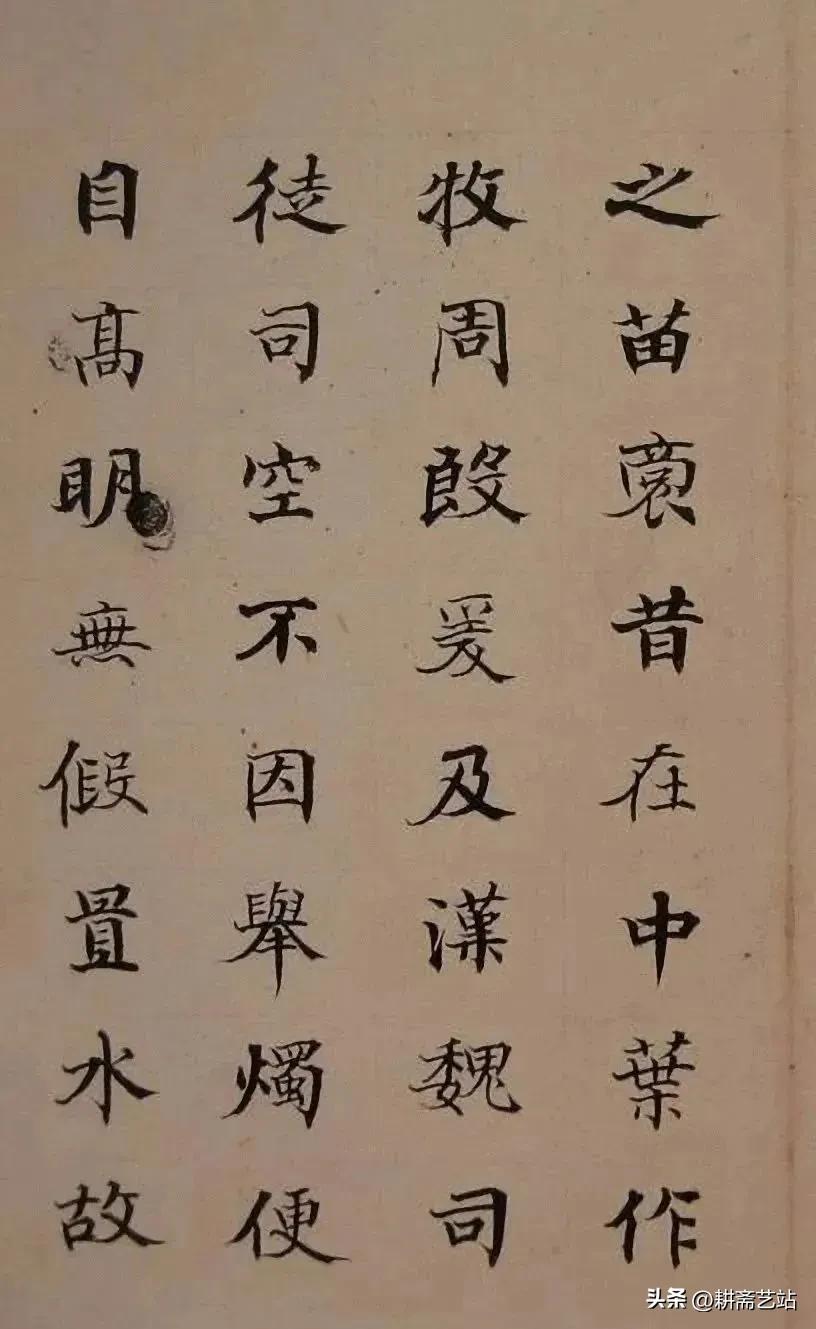 之苗裔昔在中葉作
牧周殷爰及漢魏司
徒司空不因舉燭便
自高明無假置水故
头条 @耕斋艺站